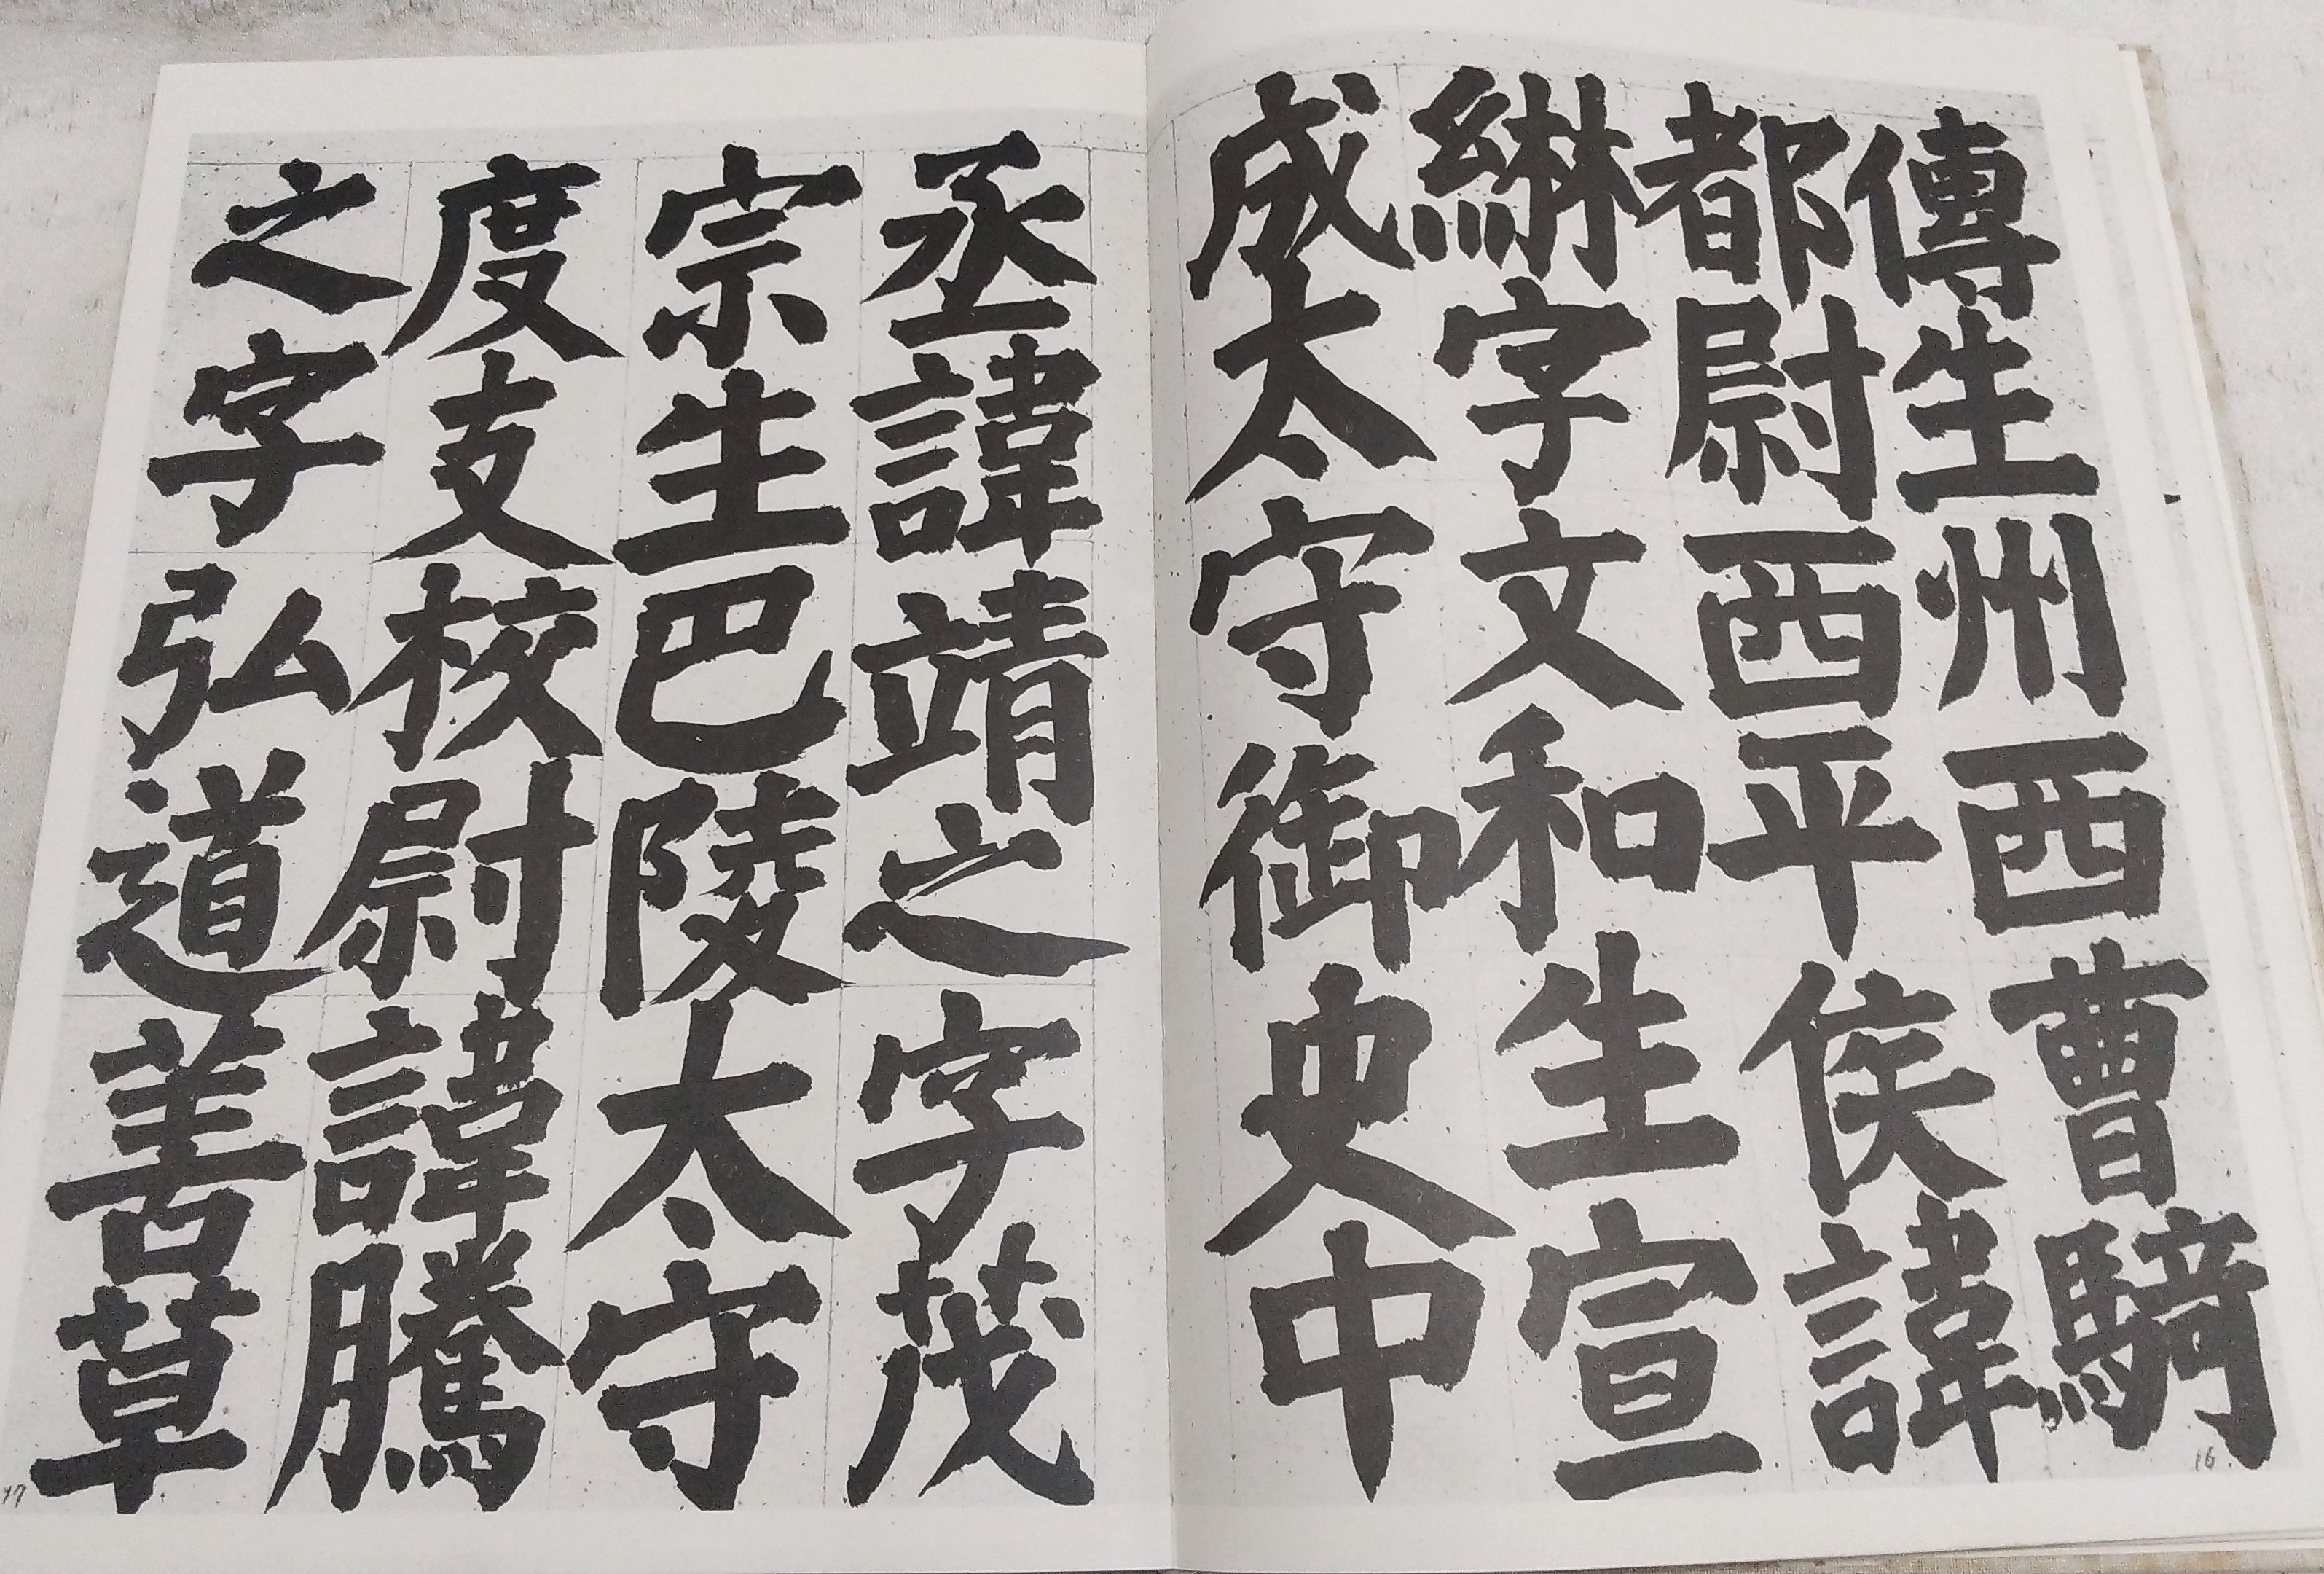 傳生州西曹騎
都尉西平侯諱
綝字文和生宣
成太守御史中
16.
丞諱靖之字茂
宗生巴陵太守
度支校尉諱騰
之字弘道善草
17